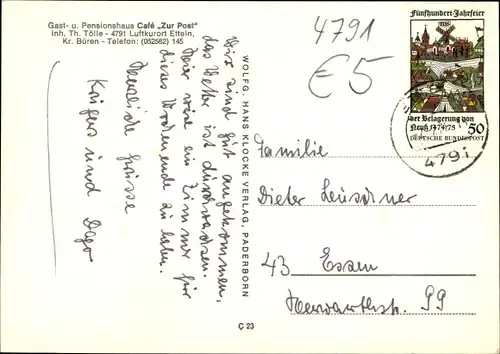 Gast- u. Pensionshaus Café „Zur Post"
Inh. Th. Tölle - 4791 Luftkurort Etteln,
Kr. Büren - Telefon: (052562) 145
Wir sind gut angekommen,
das Wetter ist durchwachsen.
Hier wie ein Zimmer für
dieses Wochenende zu haben.
Herzliche Grüsse
und
WOLFG. HANS KLOCKE VERLAG, PADERBORN
4791
€5
Fünfhundert-Jahrfeier
der Belagerung von
Neuß 1474/75
50
DEUTSCHE BUNDESPOST
479
Familie
Dieter
43 Essen
99
C 23